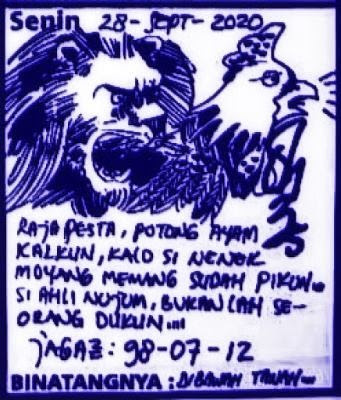 Senin 28-SEPT-2020
RAJA PESTA, POTONG AYAM
KALKUN, KALO SI NENEK
MOYANG MEMANG SUDAH PIKUN...
SI AHLI NUJUM, BUKANLAH SE-
ORANG DUKUN...
JAGA2: 98-07-12
BINATANGNYA: DIBAWAH TANAH...